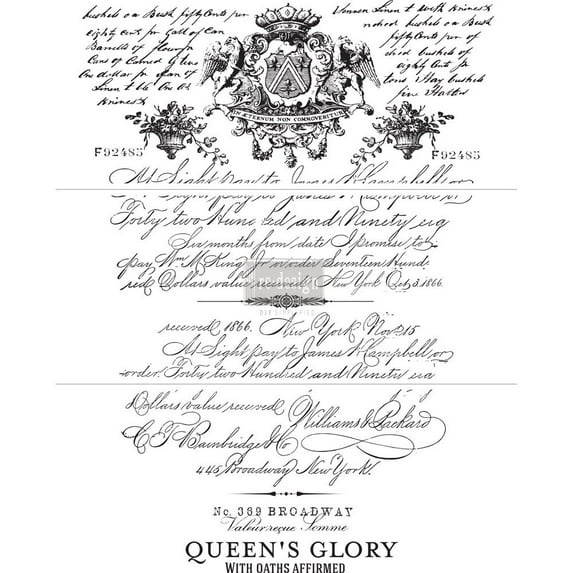 bushels on Bush fifty Cents per
eighty Cent for Gall of Can
Barrells of flour
Cans of Colored Glens
One dollar for of
Linen &
bushels on Bush
fifty Cents per
bushels of
eighty Cent for
Hay bushels
IN ÆTERNUM NON COMMOVEBITUR
F92485
F92485
At Sight pay to James W Campbell or
Forty two Hundred and Ninety six
Six months from date I promise to
pay Wm McKing Jr or order Seventeen Hund
red Dollars value received New York Oct 3, 1866.
re·design
received 1866. New York Nov 15
At Sight pay to James W Campbell or
order Forty two Hundred and Ninety six
Dollars value received Williams & Packard
C T Bainbridge & Co
445 Broadway New York.
No. 389 BROADWAY
Valeur reçue Somme
QUEEN'S GLORY
WITH OATHS AFFIRMED